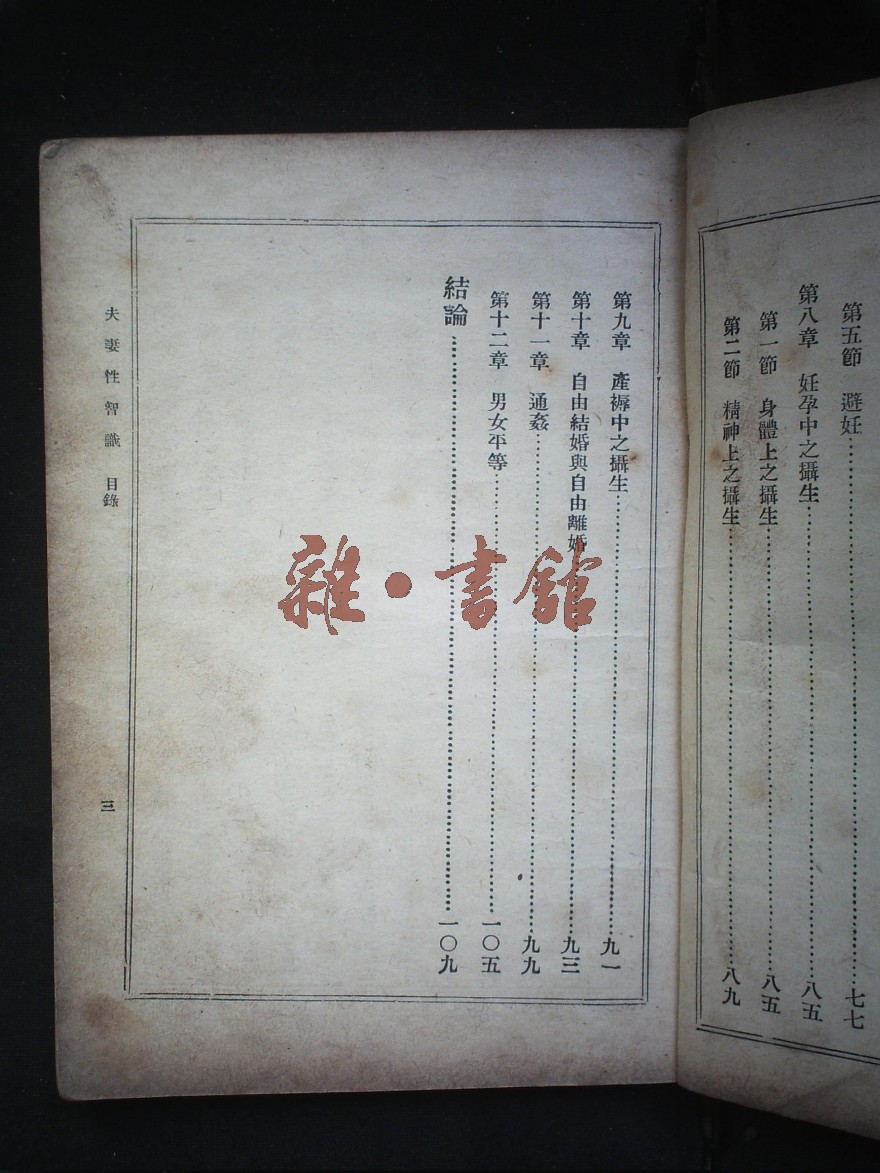 第五節　避妊……七七
第八章　妊孕中之攝生……八五
第一節　身體上之攝生……八五
第二節　精神上之攝生……八九
第九章　產褥中之攝生……九一
第十章　自由結婚與自由離婚……九三
第十一章　通姦……九九
第十二章　男女平等……一〇五
結論……一〇九
夫妻性智識　目錄
三
雜·書館